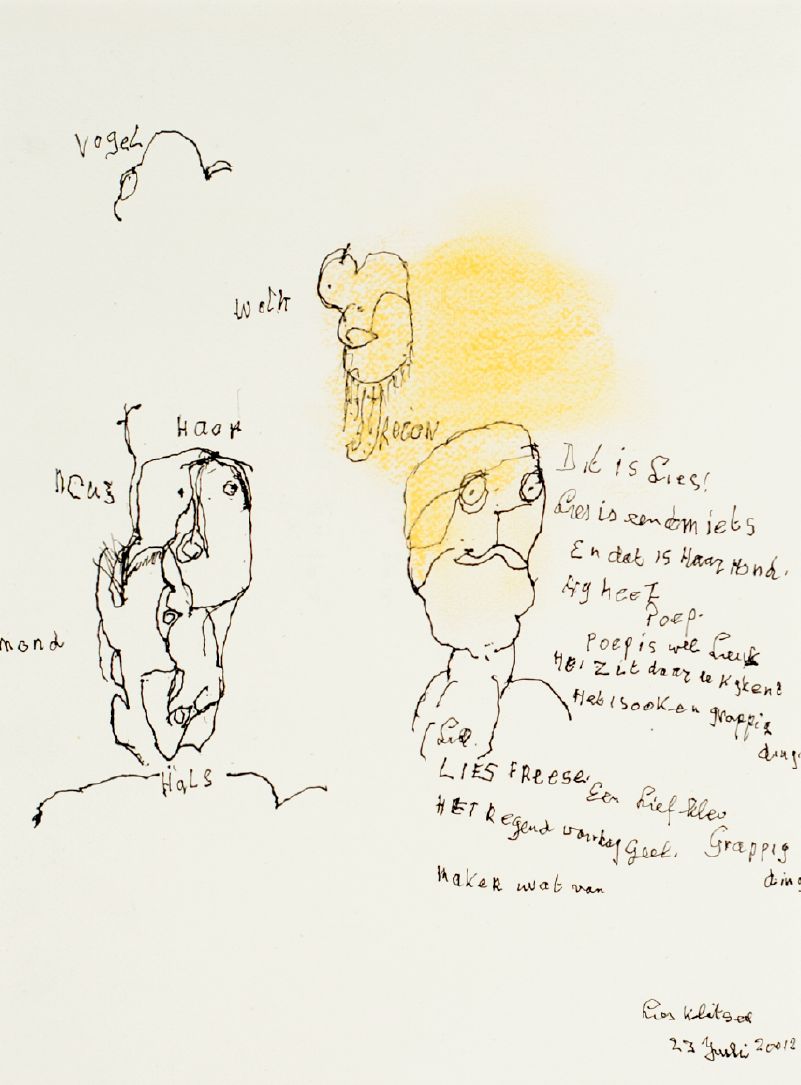 Vogel
Wolk
Regon
Haar
neus
mond
Hals
Dit is Lies!
Lies is een dom iets
En dat is Haar Mond.
heet
Poep.
Poep is wel Leuk
zit daar te Kyken!
Het is ook en grappig
ding
Lie.
LIES FREESE.
Een Lief kleu
HET Regend vandag Geel.
Grappig
ding
Maken wat van
Lies Klitsee
23 Juli 20012